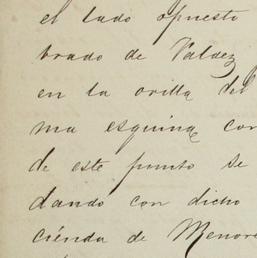 el lado opuesto
brado de Valdez
en la orilla del
ma esquina con
de este punto se
dando con dicho
ciénda de Menor